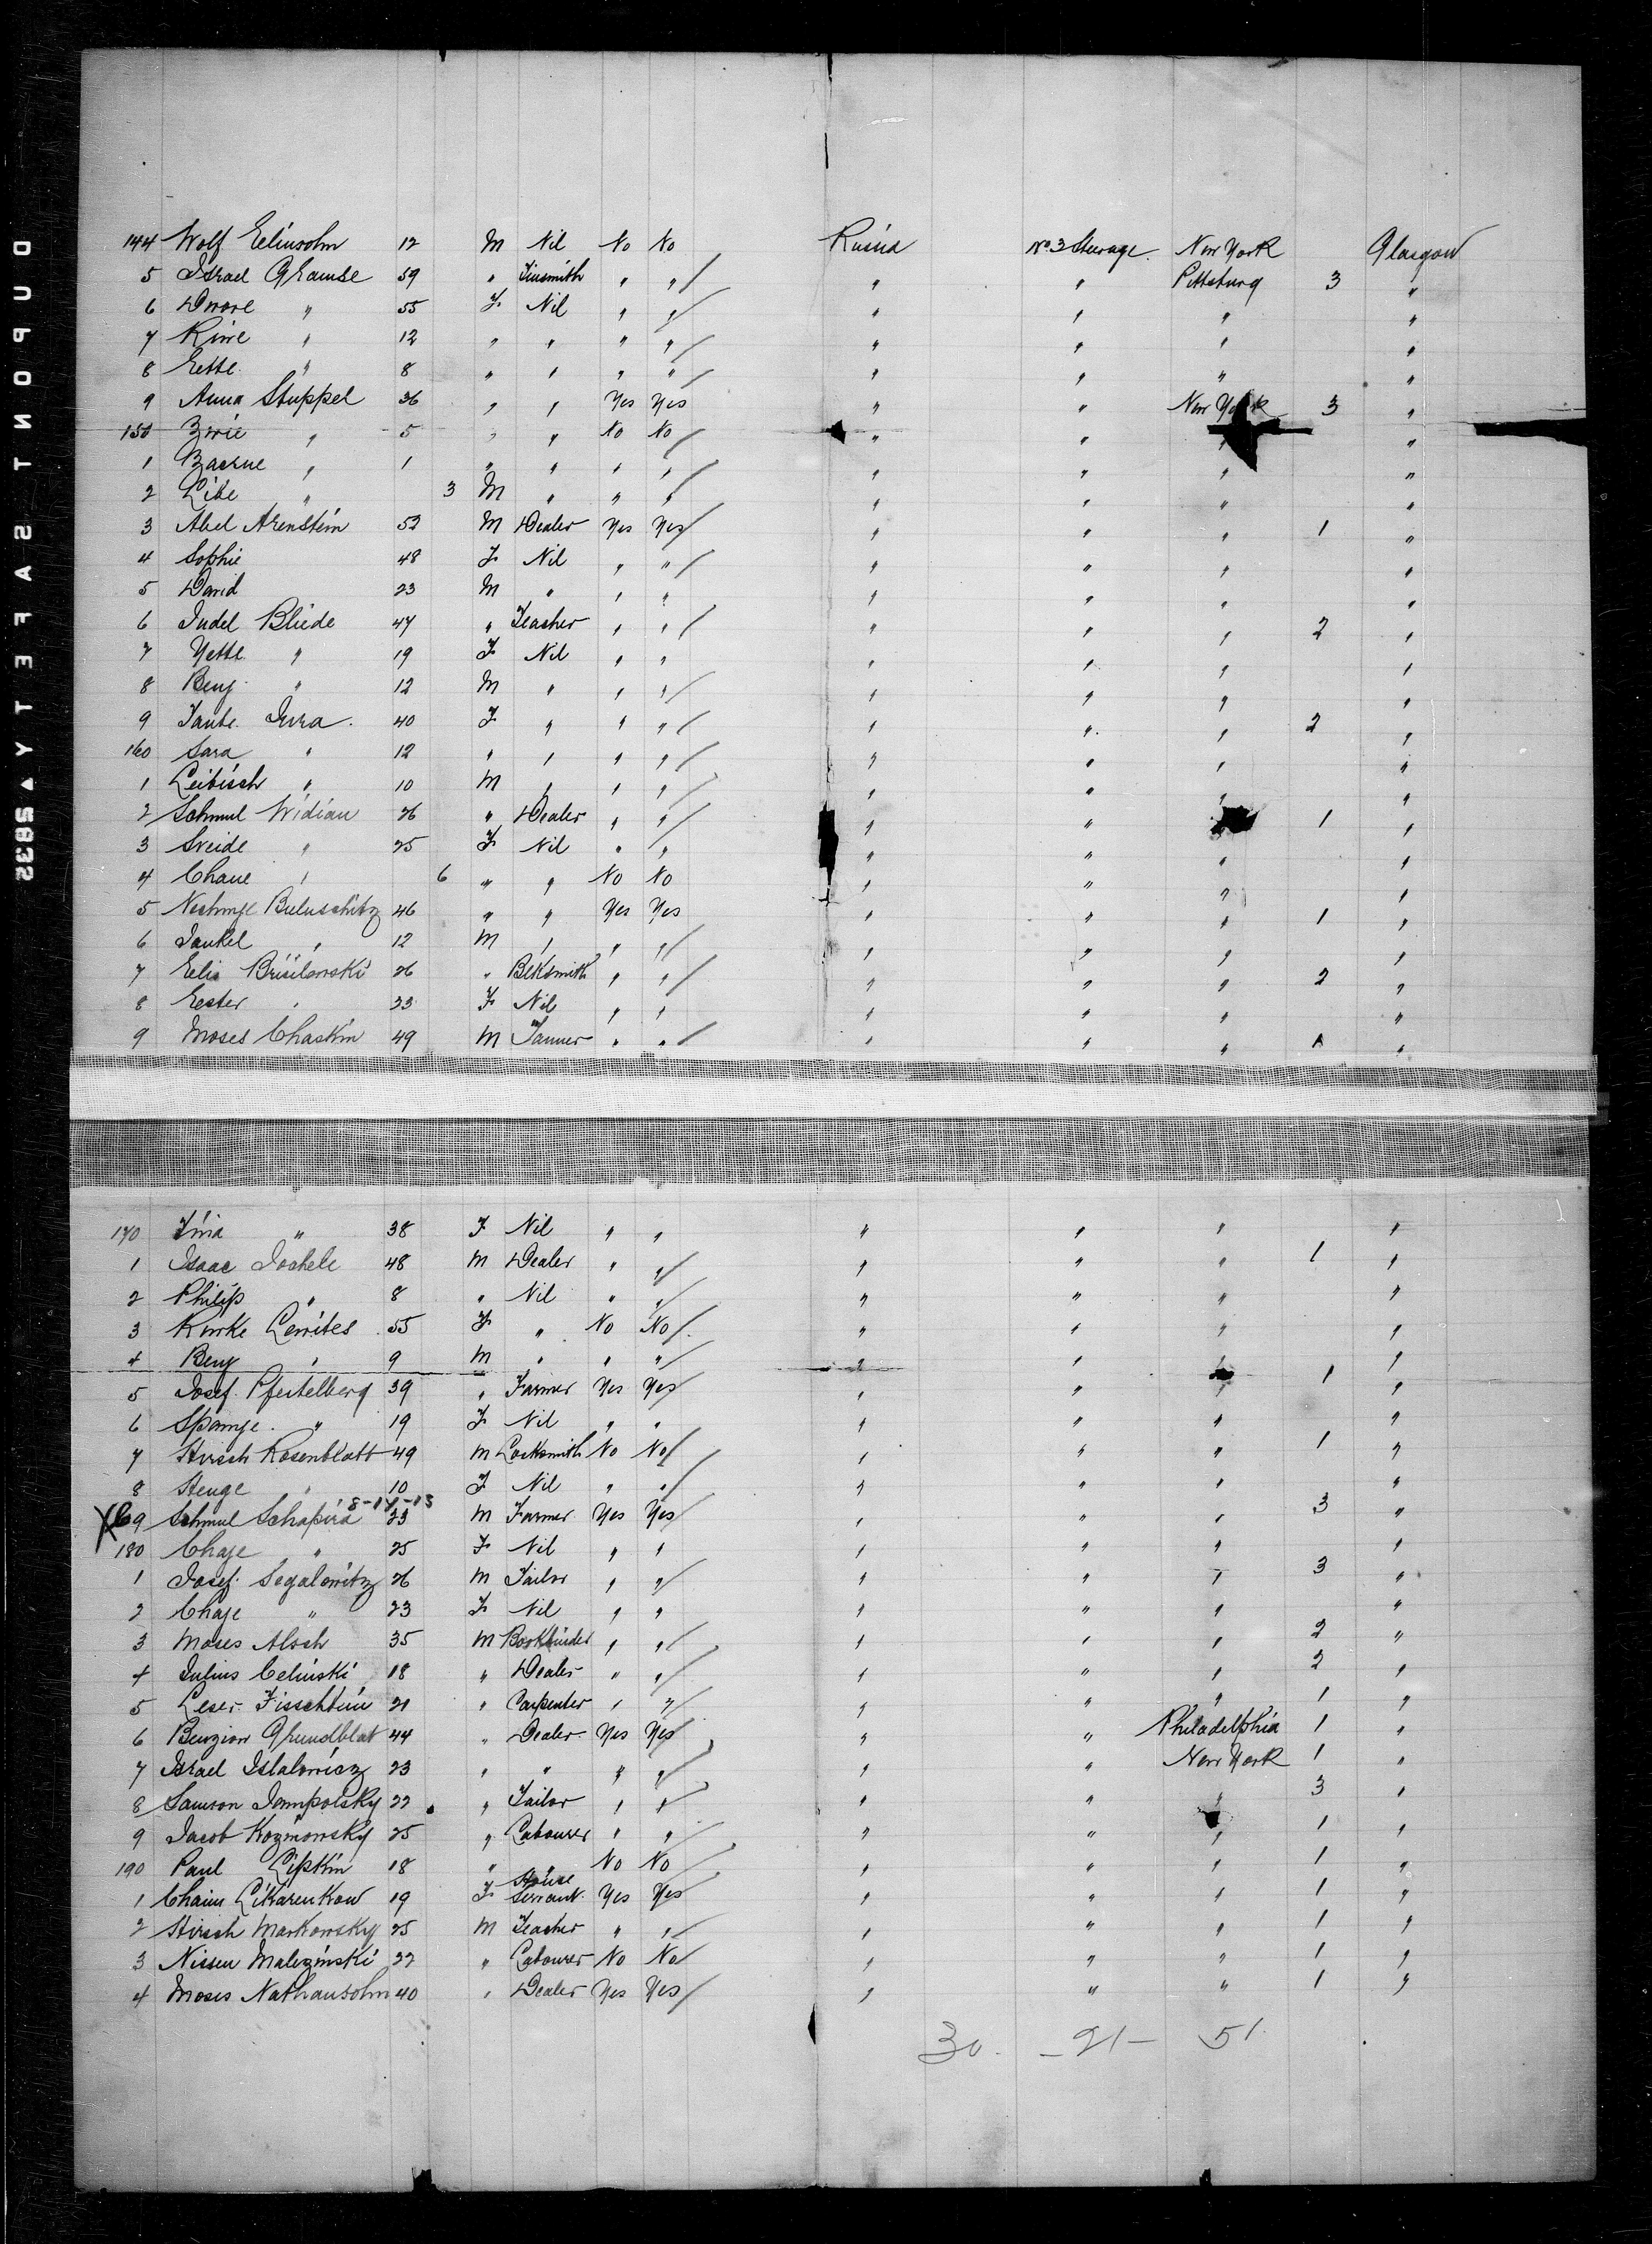 DUPONT SAFETY 5832
144 Wolf Eelinsohn 12 M Nil No No Russia No 3 Steerage. New York Glasgow
5 Israel Gramse 59 " Tinsmith " " / " " Pittsburg 3 "
6 Dwore " 55 F Nil " " / " " " "
7 Riwe " 12 " " " " / " " " "
8 Eette " 8 " " " " / " " " "
9 Anna Stuppel 36 " " Yes Yes " " New York 3 "
150 Zwie " 5 " " No No " " "
1 " 1 " " " " / " " " "
2 Libe " 3 M " " " / " " " "
3 Abel Arenstein 52 M Dealer Yes Yes / " " " 1 "
4 Sophie 48 F Nil " " / " " " "
5 David 23 M " " " " " " "
6 Judel Bliede 47 " Teacher " " / " " " 2 "
7 Yette " 19 F Nil " " " " " "
8 Benj. " 12 M " " " / " " " "
9 Taube Inra. 40 F " " " / " " " 2 "
160 Sara " 12 " " " " / " " " "
1 Leibisch " 10 M " " " / " " " "
2 Schmul Widian 26 " Dealer " " / " " 1 "
3 Sreide " 25 F Nil " " " " " "
4 Chane " 6 " " No No " " " "
5 Buluschitz 46 " " Yes Yes " " " 1 "
6 Jankel " 12 M " " " / " " " "
7 Elis Brisilowski 26 " Blksmith " " / " " " 2 "
8 Eester " 23 F Nil " " " " " "
9 Moses Chaskin 49 M Tanner " " / " " " 1 "
170 " 38 F Nil " " " " " "
1 Isaac Joshele 48 M Dealer " " / " " " 1 "
2 Philip " 8 " Nil " " / " " " "
3 Kiwke Lewites 55 F " No No / " " " "
4 Benj " 9 M " " " / " " " "
5 Josef Pfeitelberg 39 " Farmer Yes Yes / " " " 1 "
6 Spamje. " 19 F Nil " " " " " "
7 Hirsch Rosenblatt 49 M Locksmith No No / " " " 1 "
8 Henge " 10 F Nil " " / " " " "
8-14-13
X 9 Schmul Schapira 23 M Farmer Yes Yes / " " " 3 "
180 Chaje " 25 F Nil " " " " " "
1 Josef Segalowitz 26 M Tailor " " / " " " 3 "
2 Chaje " 23 F Nil " " " " " "
3 Moses Alsch 35 M Bookbinder " " / " " " 2 "
4 Julius Celinski 18 " Dealer " " / " " " 2 "
5 Leser Fisschbein 21 " Carpenter " " / " " " 1 "
6 Benzion Grundblat 44 " Dealer Yes Yes / " " Philadelphia 1 "
7 Israel Islalowicz 23 " " " " / " " New York 1 "
8 Samson Jampolsky 22 " Tailor " " / " " " 3 "
9 Jacob Kozmowsky 25 " Labourer " " / " " " 1 "
190 Paul Lipkin 18 " " No No / " " " 1 "
1 Chaim Likarenkow 19 F House Servant Yes Yes / " " " 1 "
2 Hirsch Markowsky 25 M Teacher " " / " " " 1 "
3 Nissen Malezinski 22 " Labourer No No / " " " 1 "
4 Moses Nathansohn 40 " Dealer Yes Yes / " " " 1 "
30 - 21 - 51